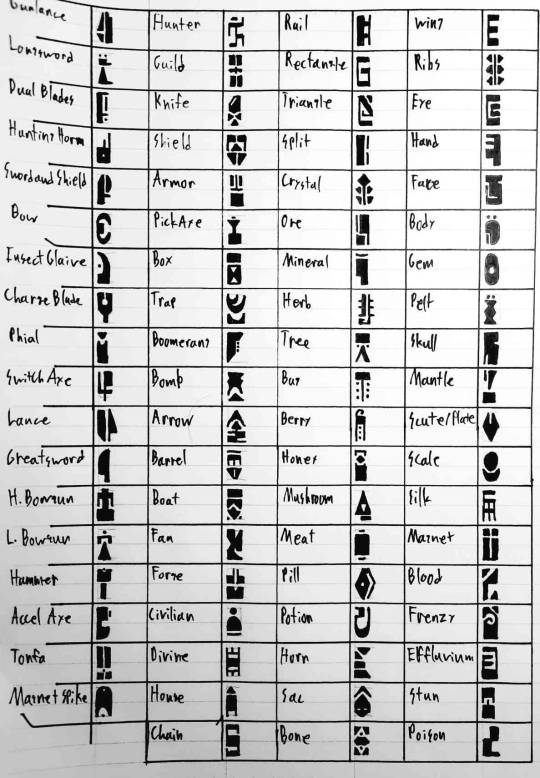 Gunlance Hunter Rail Wing
Longsword Guild Rectangle Ribs
Dual Blades Knife Triangle Eye
Hunting Horn Shield Split Hand
Sword and Shield Armor Crystal Face
Bow PickAxe Ore Body
Insect Glaive Box Mineral Gem
Charge Blade Trap Herb Pelt
Phial Boomerang Tree Skull
Switch Axe Bomb Bug Mantle
Lance Arrow Berry Scute/Plate
Greatsword Barrel Honey Scale
H. Bowgun Boat Mushroom Silk
L. Bowgun Fan Meat Magnet
Hammer Forge Pill Blood
Accel Axe Civilian Potion Frenzy
Tonfa Divine Horn Effluvium
Magnet Spike House Sac Stun
Chain Bone Poison